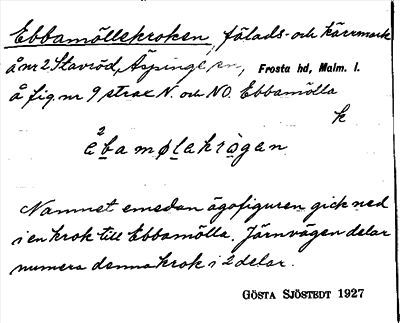 Ebbamöllskroken, fälads- och kärrmark
å nr 2 Stavröd, Äspinge sn, Frosta hd, Malm. l.
å fig. nr 9 strax N. och NO. Ebbamölla
k
èbamølakrogan
Namnet emedan ägofiguren gick ned
i en krok till Ebbamölla. Järnvägen delar
numera denna krok i 2 delar.
GÖSTA SJÖSTEDT 1927